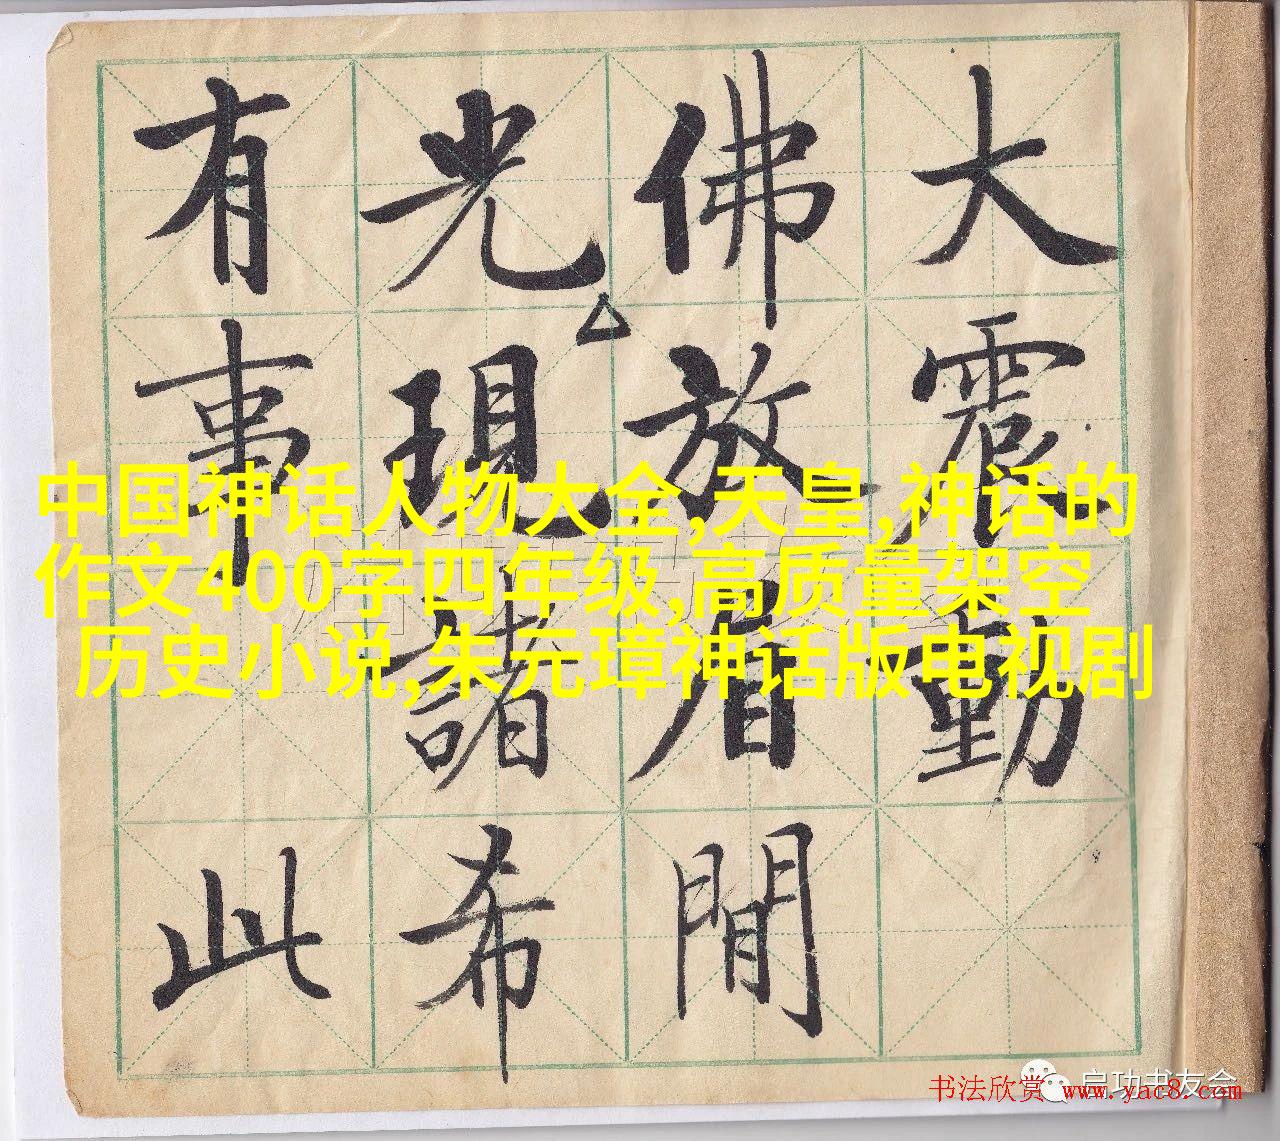 大震動
佛放眉間
光現諸希
有事此
中国神话人物大全,天皇,神话的
作文400字四年级,高质量架空
历史小说,朱元璋神话版电视剧
启功书友会
书法欣赏 www.yac8.com